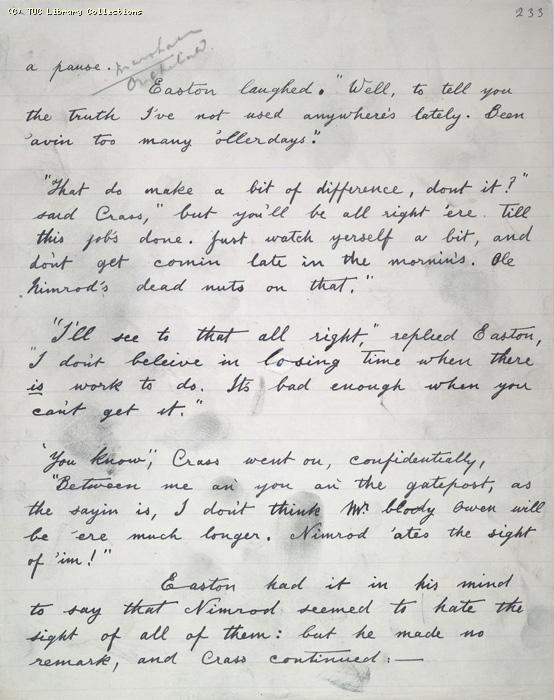 (C) TUC Library Collections
233
a pause.
Easton laughed. "Well, to tell you
the truth I've not used anywhere's lately. Been
'avin too many 'ollerdays."
"That do make a bit of difference, dont it?"
said Crass," but you'll be all right 'ere till
this job's done. Just watch yerself a bit, and
don't get comin late in the mornin's. Ole
Nimrod's dead nuts on that."
"I'll see to that all right," replied Easton,
"I don't beleive in losing time when there
is work to do. Its bad enough when you
can't get it."
"You know", Crass went on, confidentially,
"Between me an' you an' the gatepost, as
the sayin is, I don't think Mr bloody Owen will
be 'ere much longer. Nimrod 'ates the sight
of 'im!"
Easton had it in his mind
to say that Nimrod seemed to hate the
sight of all of them: but he made no
remark, and Crass continued:—